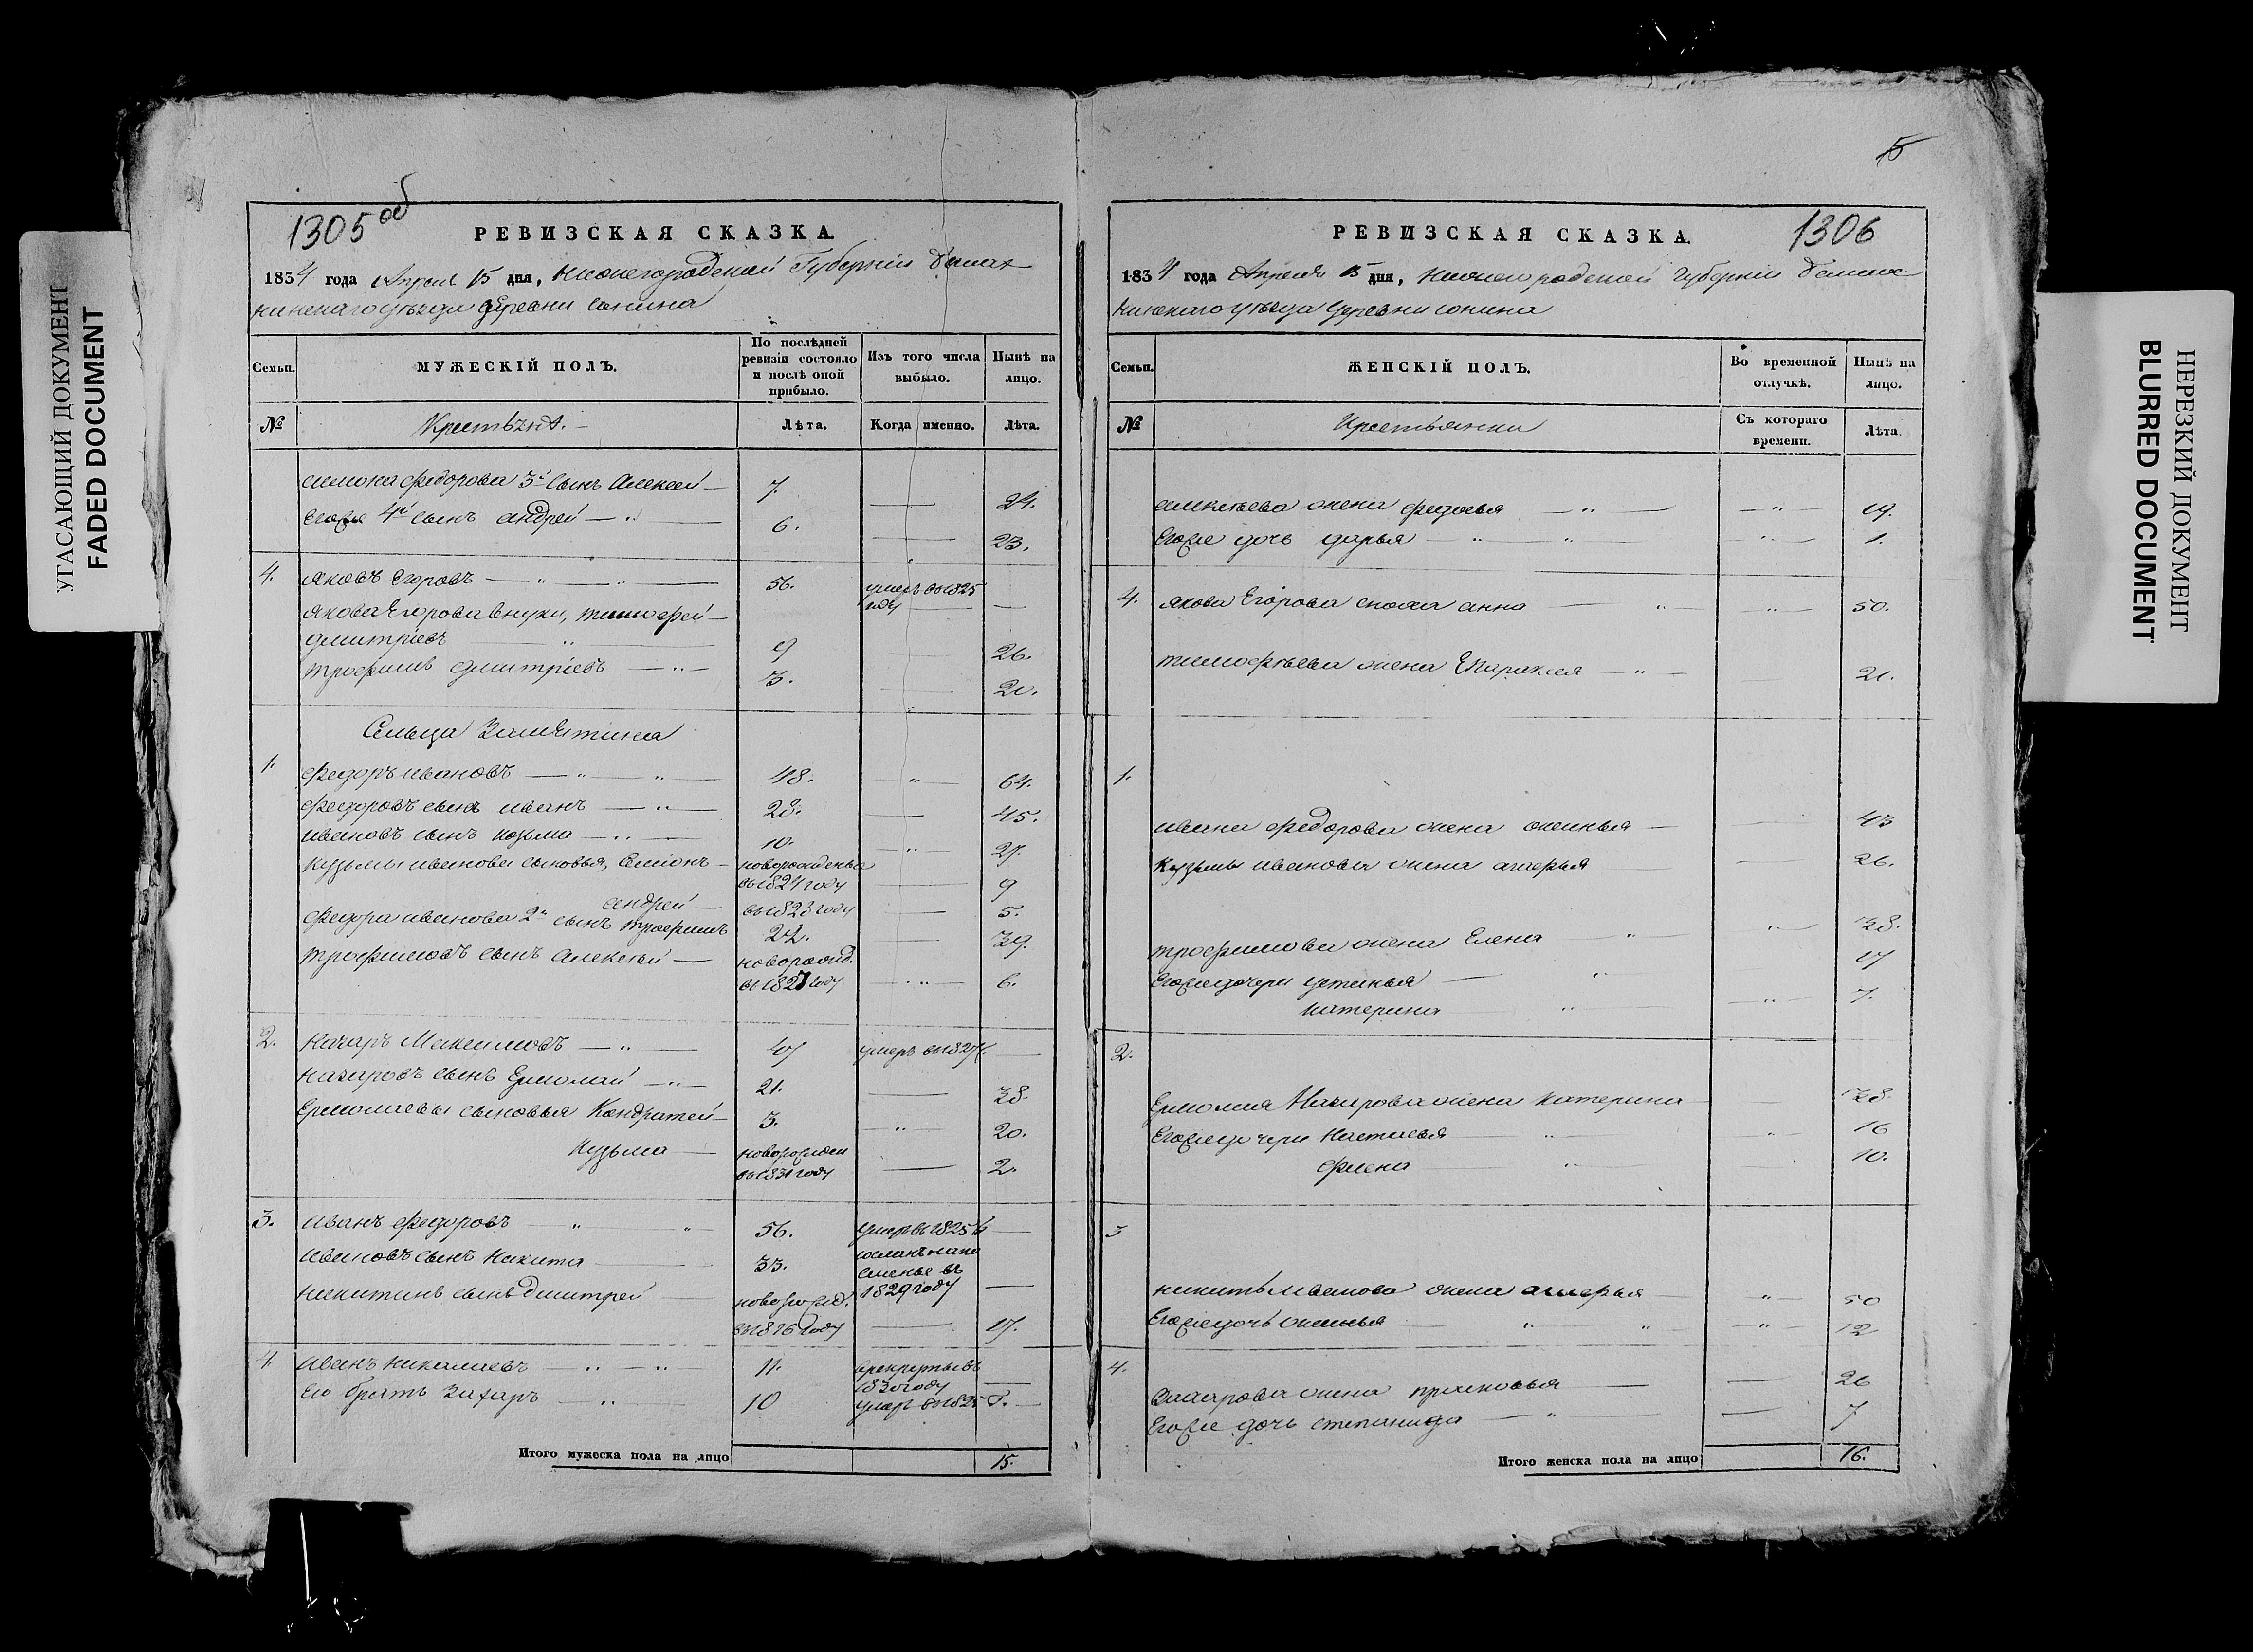 УГАСАЮЩИЙ ДОКУМЕНТ
FADED DOCUMENT
1305 об
РЕВИЗСКАЯ СКАЗКА.
1834 года Апреля 15 дня, Нижегородской Губернии
уезда деревни Сонина
Семьи.
МУЖЕСКІЙ ПОЛЪ.
По послѣдней ревизіи состояло и послѣ оной прибыло.
Изъ того числа выбыло.
Нынѣ на лицо.
№
Крестьяне.
Лѣта.
Когда именно.
Лѣта.
Симона Федорова 3й сынъ Алексей 7. 24.
Егоже 4й сынъ андрей 6. 23.
4. Яковъ Егоровъ 56. умеръ въ 1825 году
Якова Егорова внуки, тимофей
дмитріевъ 9 26.
трофимъ дмитріевъ 3. 20.
Сельца
1. Федоръ ивановъ 48. 64.
Федоровъ сынъ иванъ 28. 45.
ивановъ сынъ козьма 10. 27.
Кузьмы иванова сыновья, Семіонъ новорожденые въ 1824 году 9
андрей въ 1828 году 5.
Федора иванова 2й сынъ трофимъ 22. 39.
трофимовъ сынъ алексей новорожд. въ 1827 году 6.
2. Назаръ Максимовъ 47 умеръ въ 1827 г.
назаровъ сынъ Ермолай 21. 38.
Ермолаевы сыновья Кондратей 3. 20.
Кузьма новорожден въ 1831 году 2.
3. иванъ федоровъ 56. умеръ въ 1825 г.
ивановъ сынъ никита 33. сосланъ на поселенье въ 1829 году
никитинъ сынъ дмитрей новорожд. въ 1816 году 17.
4. иванъ николаевъ 11. в рекруты въ 1830 году
Его братъ Захаръ 10 умеръ въ 1825 г.
Итого мужеска пола на лицо 15.
5
РЕВИЗСКАЯ СКАЗКА.
1306
1834 года Апреля 15 дня, Нижегородской Губернии
уезда деревни сонина
Семьи.
ЖЕНСКІЙ ПОЛЪ.
Во временной отлучкѣ.
Нынѣ на лицо.
№
Крестьянки
Съ котораго времени.
Лѣта.
алексеева жена федосья 19.
Егоже дочь дарья 1.
4. якова Егорова сноха анна 50.
тимофеева жена 21.
1.
ивана федорова жена аксинья 43
Кузьмы иванова жена 26.
трофимова жена Елена 38.
Егоже дочери устинья 17
катерина 7.
2.
Ермолая Назарова жена катерина 38
Егоже дочери настасья 16
Фиена 10.
3
никиты иванова жена 50
Егоже дочь аксинья 12
4.
Захарова жена прасковья 26
Егоже дочь степанида 7
Итого женска пола на лицо 16.
НЕРЕЗКИЙ ДОКУМЕНТ
BLURRED DOCUMENT